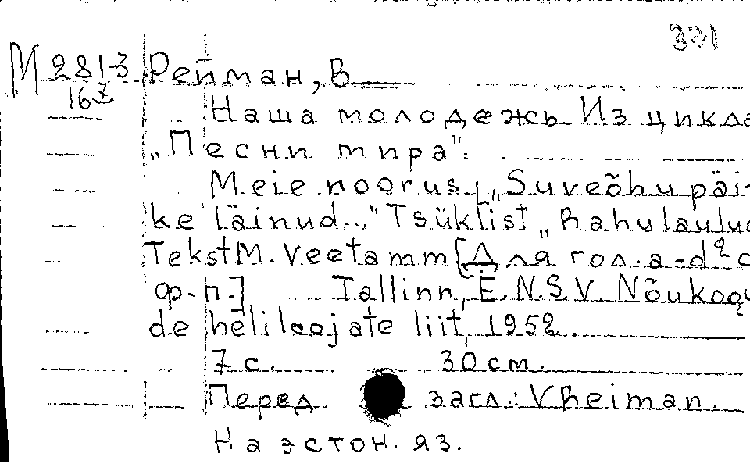 331
М 281-3 Рейман, В
16
Наша молодежь Из цикла
„Песни мира".
Meie noorus. „Suveõhu päi-
ke läinud..." Tsüklist „Rahulaulud
Tekst M. Veetamm [Для гол. a-d² с
ф-п.] Tallinn, E.N.S.V. Nõukogu
de heliloojate liit, 1952.
7 с. 30 см.
Перед загл.: V Reiman.
На эстон. яз.